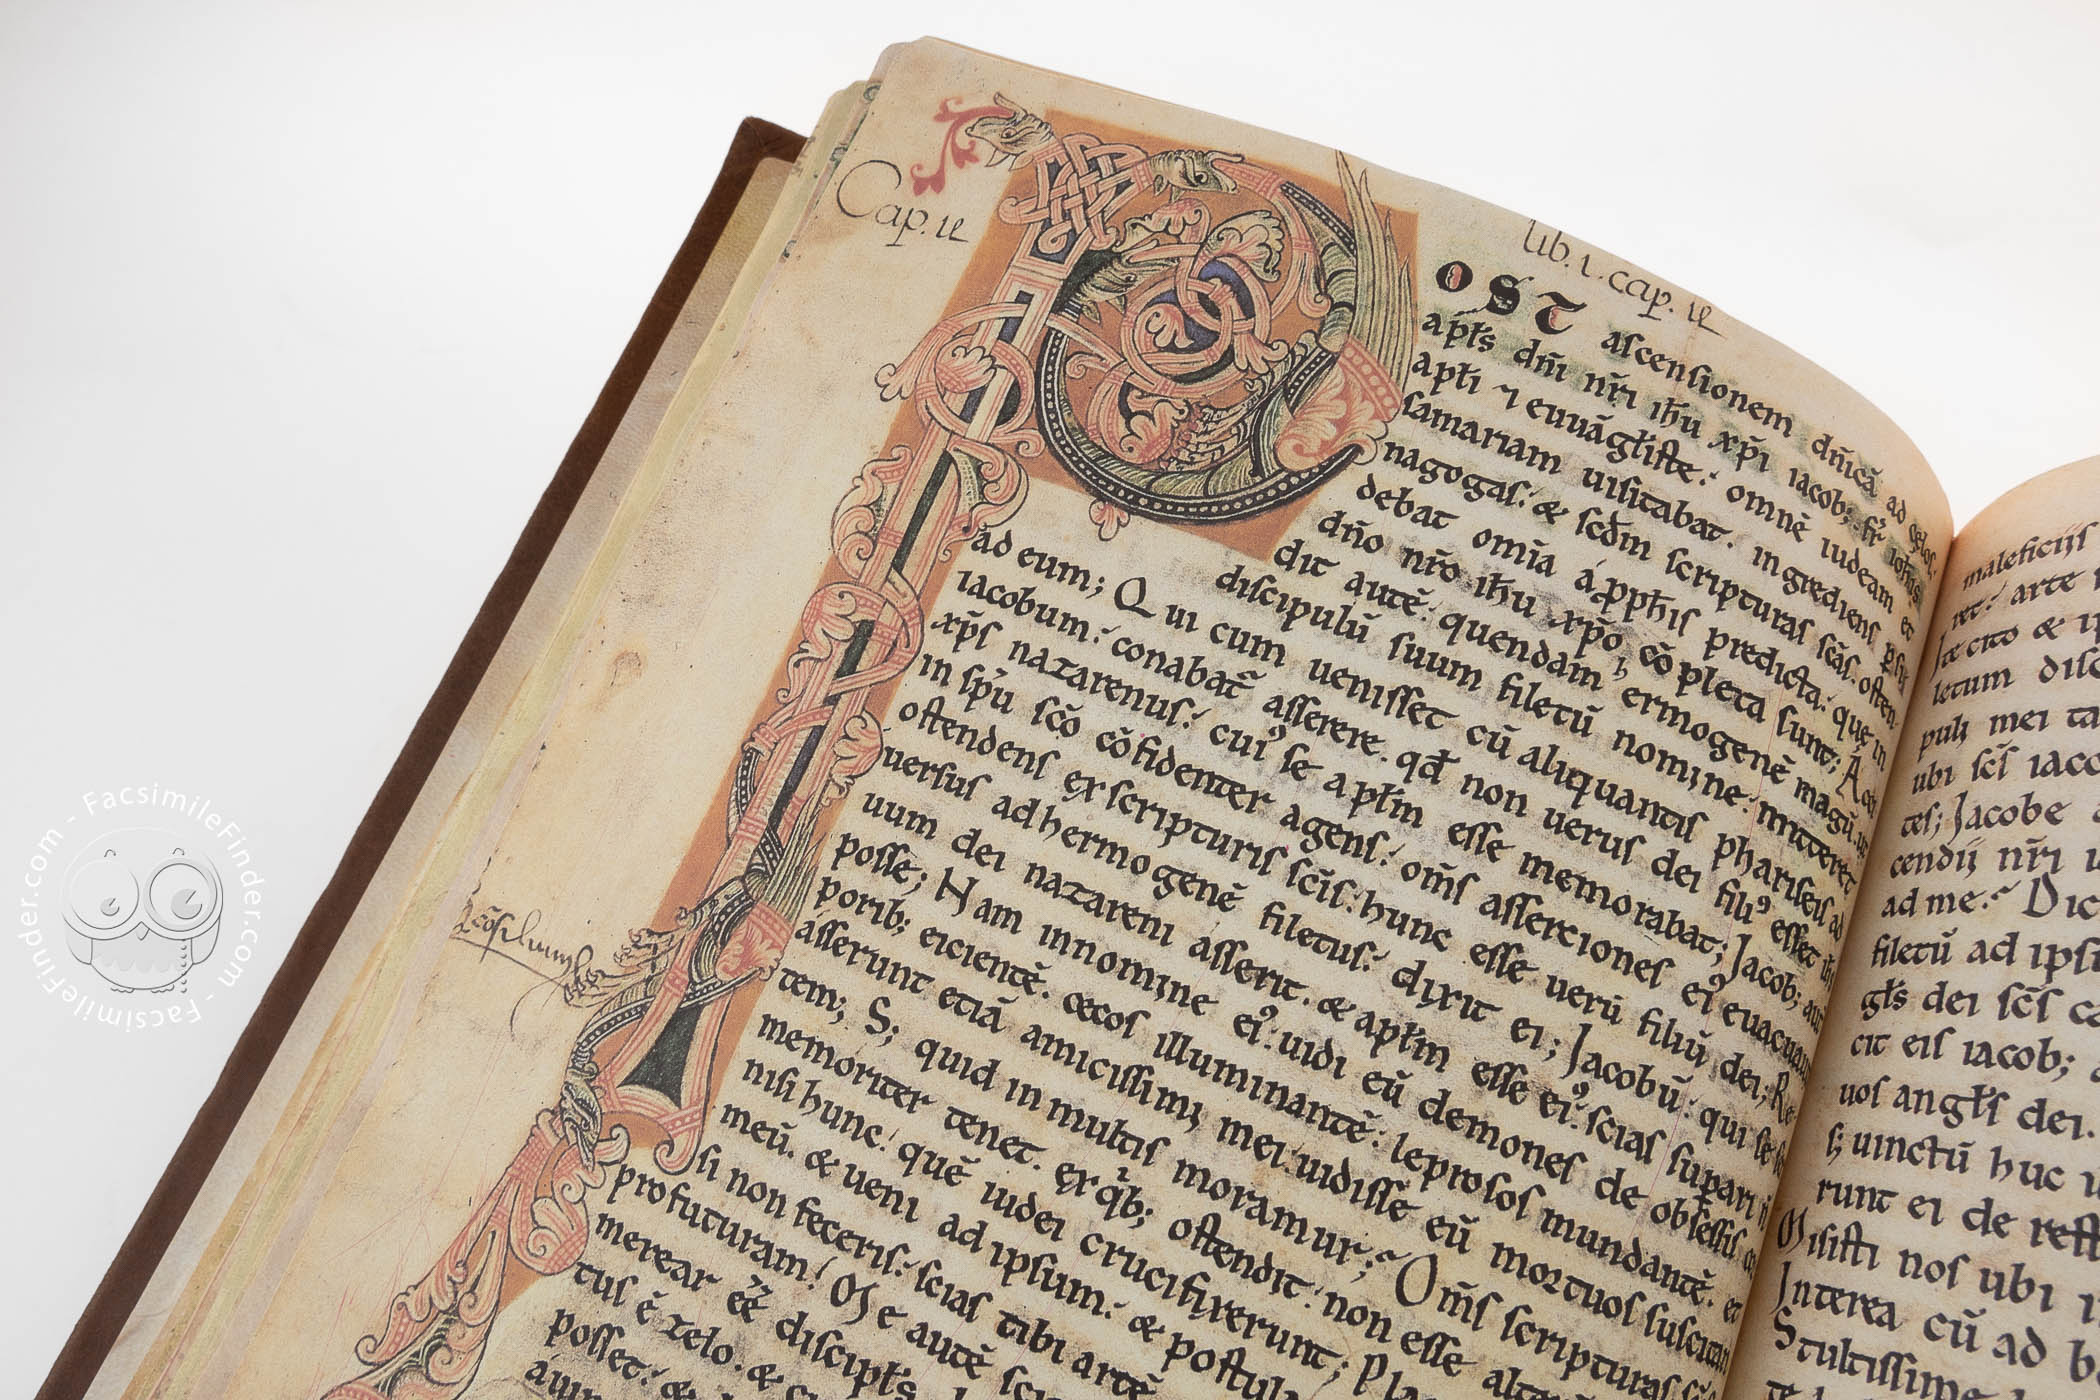 Cap. ii
lib. i. cap. ii
POST ascensionem dn̄icā ad cęlos,
apƚs dn̄i nr̄i ih̄u xp̄i iacob; fr̄ ioh̄is
apƚi ⁊ euuāgƚiste. omnē iudeam et
samariam uisitabat. ingrediens p sin
nagogas. & scdm scripturas scās. osten
debat omīa á ꝓph̄is predicta. quę in
dn̄o nr̄o ih̄u xp̄o cōpleta sunt; Acci
dit autē quendam ermogenē magū. ut
discipulū suum filetū nomine. mitteret
ad eum; Qui cum uenisset cū aliquantis phariseis ad
iacobum. conabat̄ asserere. qd non uerus dei filiꝰ esset ih̄s
xp̄s nazarenus. cuiꝰ se apƚm esse memorabat; Jacob; aut
in sp̄u scō cōfidenter agens. om̄s assertiones eiꝰ euacuauit
ostendens ex scripturis scīs. hunc esse uerū filiū dei; Re
uersus ad hermogenē filetus. dixit ei; Jacobū. qui se ser
uum dei nazareni asserit. & apƚm esse eiꝰ. scias supari ń
posse; Nam innomine eiꝰ. uidi eū demones de obsessis cor
porib; eicientē. cecos illuminantē. leprosos mundantē. et
ásserunt etiā amicissimi mei. uidisse eū mortuos suscitan
tem; S; quid in multis moramur; Om̄s scripturas scās
memoriter tenet. ex qb; ostendit. non esse
nisi hunc quē iudei crucifixerunt;
meū. & ueni ad ipsum. & postula
si non feceris. scias tibi artē
profuturam! autē
merear eē discipƚs
tus ē zelo. &
posset. &
maleficiis
ret. arte
te cito &
letum
puli mei
ubi scs iaco
tes; Jacobe
cendii nr̄i
ad me. Dic
filetū ad ipsi
gƚs dei scs
cit eis iacob;
uos angƚs dei.
s; uinctū huc
runt ei de
Misisti nos ubi
Interea cū ad
Stultissime
FacsimileFinder.com - FacsimileFinder.com -